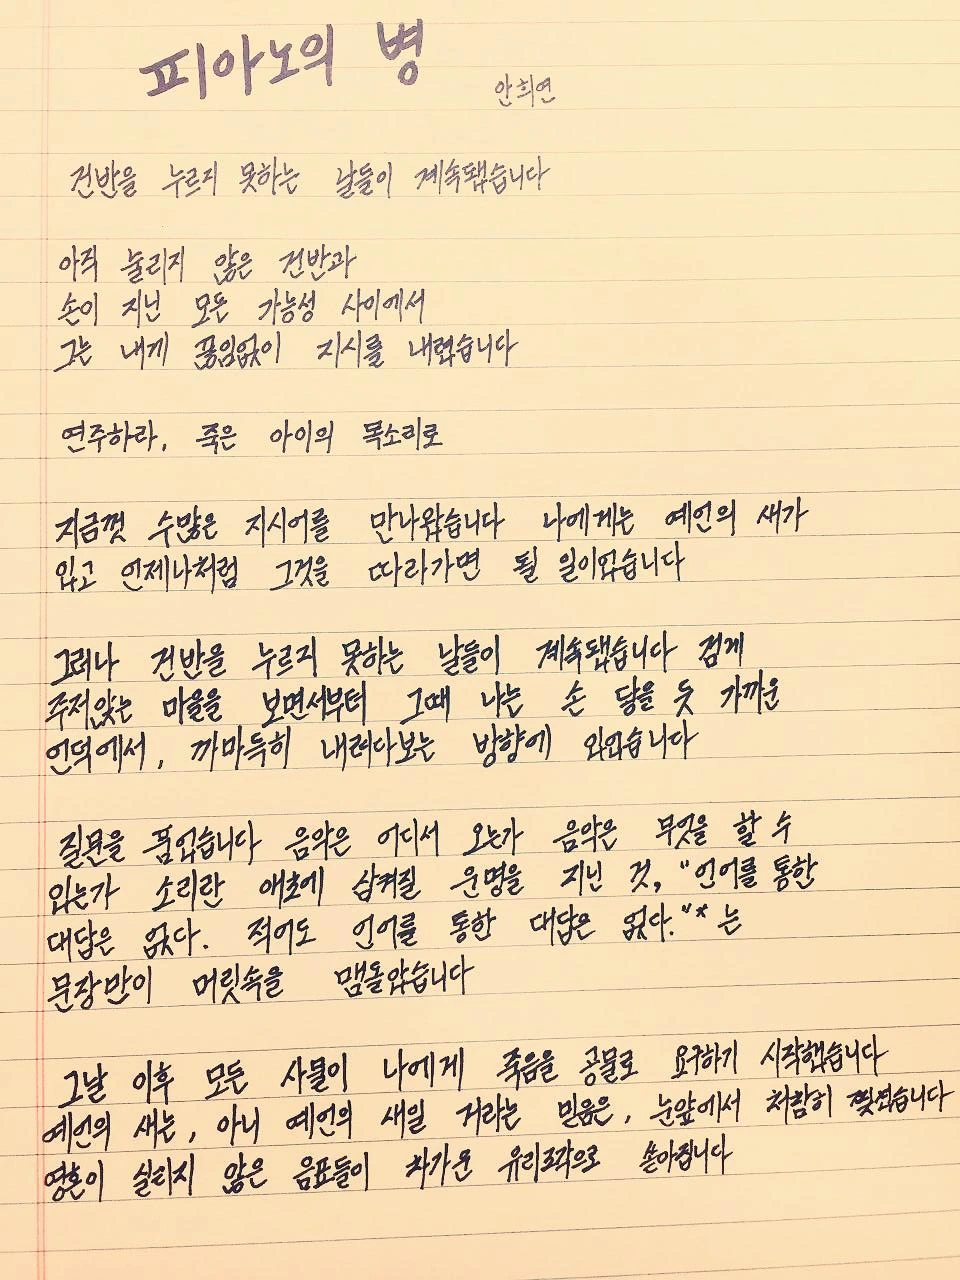 피아노의 병
안희연
건반을 누르지 못하는 날들이 계속됐습니다
아직 눌리지 않은 건반과
손이 지닌 모든 가능성 사이에서
그는 내게 끊임없이 지시를 내렸습니다
연주하라, 죽은 아이의 목소리로
지금껏 수많은 지시어를 만나왔습니다 나에게는 예언의 새가
있고 언제나처럼 그것을 따라가면 될 일이었습니다
그러나 건반을 누르지 못하는 날들이 계속됐습니다 검게
주저앉는 마을을 보면서부터 그때 나는 손 닿을 듯 가까운
언덕에서, 까마득히 내려다보는 방향에 있었습니다
질문을 품었습니다 음악은 어디서 오는가 음악은 무엇을 할 수
있는가 소리란 애초에 삼켜질 운명을 지닌 것, "언어를 통한
대답은 없다. 적어도 언어를 통한 대답은 없다."* 는
문장만이 머릿속을 맴돌았습니다
그날 이후 모든 사물이 나에게 죽음을 공물로 요구하기 시작했습니다
예언의 새는, 아니 예언의 새일 거라는 믿음은, 눈앞에서 처참히 찢겼습니다
영혼이 실리지 않은 음표들이 차가운 유리조각으로 쏟아집니다